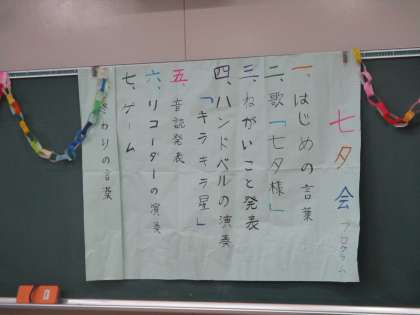 七夕会 プログラム
一、はじめの言葉
二、歌「七夕様」
三、ねがいこと発表
四、ハンドベルの演奏
「キラキラ星」
五、音読発表
六、リコーダーの演奏
七、ゲーム
終わりの言葉